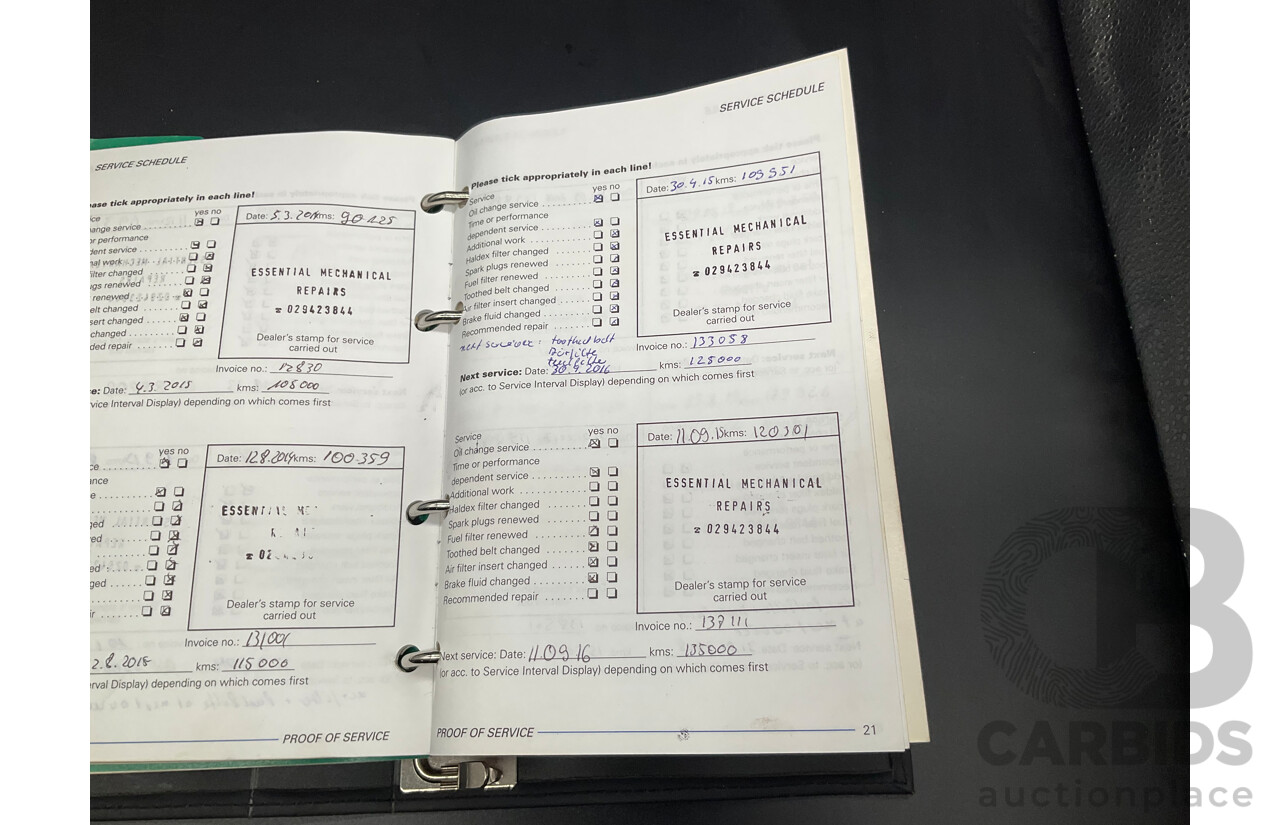 SERVICE SCHEDULE
ase tick appropriately in each line!
yes no
ange service
or performance
dent service
nal work
filter changed
gs renewed
renewed
elt changed
sert changed
changed
ded repair
Date: 5.3.2014 kms: 90125
ESSENTIAL MECHANICAL
REPAIRS
☎ 029423844
Dealer's stamp for service
carried out
Invoice no.: 12830
e: Date: 4.3.2015 kms: 105000
vice Interval Display) depending on which comes first
yes no
Date: 12.8.2014 kms: 100.359
ESSEN
Dealer's stamp for service
carried out
Invoice no.: 131001
2.8.2015 kms: 115000
erval Display) depending on which comes first
PROOF OF SERVICE
SERVICE SCHEDULE
Please tick appropriately in each line!
yes no
Service
Oil change service
Time or performance
dependent service
Additional work
Haldex filter changed
Spark plugs renewed
Fuel filter renewed
Toothed belt changed
Air filter insert changed
Brake fluid changed
Recommended repair
Date: 30.4.15 kms: 109951
ESSENTIAL MECHANICAL
REPAIRS
☎ 029423844
Dealer's stamp for service
carried out
toothed belt
Invoice no.: 133058
Next service: Date: 30.4.2016 kms: 125000
(or acc. to Service Interval Display) depending on which comes first
yes no
Service
Oil change service
Time or performance
dependent service
Additional work
Haldex filter changed
Spark plugs renewed
Fuel filter renewed
Toothed belt changed
Air filter insert changed
Brake fluid changed
Recommended repair
Date: 11.09.15 kms: 120301
ESSENTIAL MECHANICAL
REPAIRS
☎ 029423844
Dealer's stamp for service
carried out
Invoice no.: 137111
Next service: Date: 11.09.16 kms: 135000
(or acc. to Service Interval Display) depending on which comes first
PROOF OF SERVICE 21
CARBIDS
auctionplace